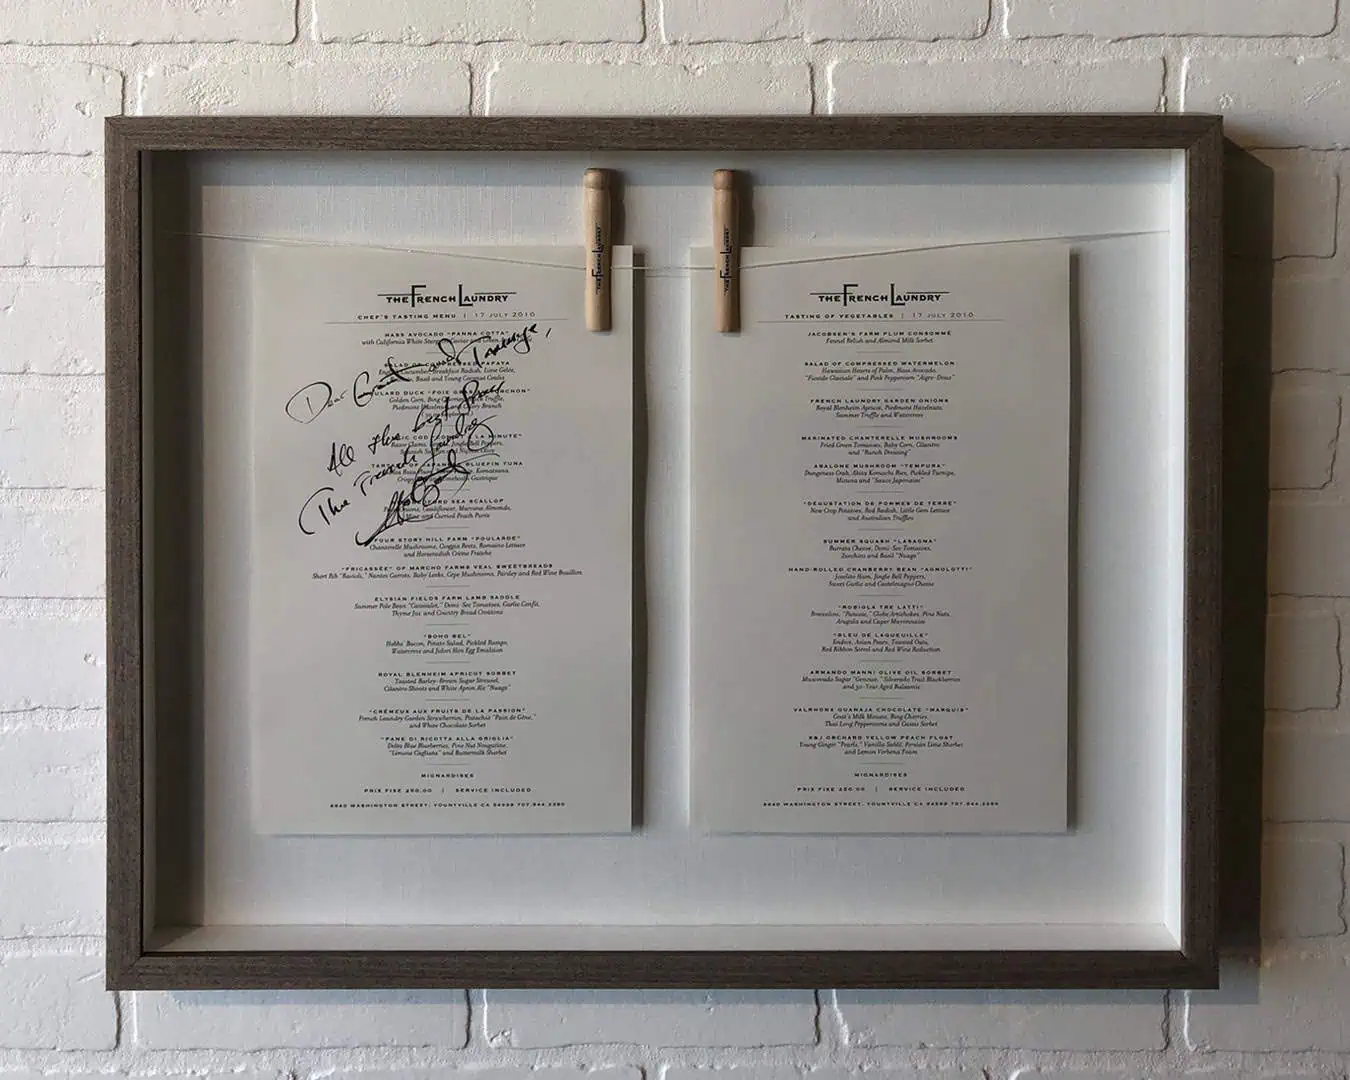 THE FRENCH LAUNDRY
CHEF'S TASTING MENU | 17 JULY 2016
HASS AVOCADO "PANNA COTTA"
with California White Sturgeon Caviar and Green
SALAD OF COMPRESSED PAPAYA
English Cucumber, Breakfast Radish, Lime Gelée,
Basil and Young Coconut Coulis
MOULARD DUCK "FOIE GRAS" TORCHON
Golden Corn, Bing Cherries, Truffle,
Piedmont Hazelnuts and Celery Branch
"À LA MINUTE"
Razor Clams, Jingle Bell Peppers,
TARTARE OF JAPANESE BLUEFIN TUNA
Komatsuna,
Gastrique
SEA SCALLOP
Cauliflower, Marcona Almonds,
and Curried Peach Purée
FOUR STORY HILL FARM "POULARDE"
Chanterelle Mushrooms, Cioggia Beets, Romaine Lettuce
and Horseradish Crème Fraîche
"FRICASSÉE" OF MARCHO FARMS VEAL SWEETBREADS
Short Rib "Ravioli," Nantes Carrots, Baby Leeks, Cepe Mushrooms, Parsley and Red Wine Bouillon
ELYSIAN FIELDS FARM LAMB SADDLE
Summer Pole Bean "Cassoulet," Demi-Sec Tomatoes, Garlic Confit,
Thyme Jus and Country Bread Croûtons
"BOHO BEL"
Hobbs' Bacon, Potato Salad, Pickled Ramps,
Watercress and Jidori Hen Egg Emulsion
ROYAL BLENHEIM APRICOT SORBET
Toasted Barley-Brown Sugar Streusel,
Cilantro Shoots and White Apron Ale "Nuage"
"CRÉMEUX AUX FRUITS DE LA PASSION"
French Laundry Garden Strawberries, Pistachio "Pain de Gène,"
and White Chocolate Sorbet
"PANE DI RICOTTA ALLA GRIGLIA"
Delta Blue Blueberries, Pine Nut Nougatine,
"Limone Cagliata" and Buttermilk Sherbet
MIGNARDISES
PRIX FIXE 250.00 | SERVICE INCLUDED
6640 WASHINGTON STREET, YOUNTVILLE CA 94599 707.944.2380
Dear and
All the best from
The French Laundry
THE FRENCH LAUNDRY
THE FRENCH LAUNDRY
THE FRENCH LAUNDRY
TASTING OF VEGETABLES | 17 JULY 2016
JACOBSEN'S FARM PLUM CONSOMMÉ
Fennel Relish and Almond Milk Sorbet
SALAD OF COMPRESSED WATERMELON
Hawaiian Hearts of Palm, Hass Avocado,
"Ficoïde Glaciale" and Pink Peppercorn "Aigre-Doux"
FRENCH LAUNDRY GARDEN ONIONS
Royal Blenheim Apricot, Piedmont Hazelnuts,
Summer Truffle and Watercress
MARINATED CHANTERELLE MUSHROOMS
Fried Green Tomatoes, Baby Corn, Cilantro
and "Ranch Dressing"
ABALONE MUSHROOM "TEMPURA"
Dungeness Crab, Akita Komachi Rice, Pickled Turnips,
Mizuna and "Sauce Japonaise"
"DÉGUSTATION DE POMMES DE TERRE"
New Crop Potatoes, Red Radish, Little Gem Lettuce
and Australian Truffles
SUMMER SQUASH "LASAGNA"
Burrata Cheese, Demi-Sec Tomatoes,
Zucchini and Basil "Nuage"
HAND-ROLLED CRANBERRY BEAN "AGNOLOTTI"
Joselito Ham, Jingle Bell Peppers,
Sweet Garlic and Castelmagno Cheese
"ROBIOLA TRE LATTI"
Broccolini, "Panisse," Globe Artichokes, Pine Nuts,
Arugula and Caper Mayonnaise
"BLEU DE LAQUEUILLE"
Endive, Asian Pears, Toasted Oats,
Red Ribbon Sorrel and Red Wine Reduction
ARMANDO MANNI OLIVE OIL SORBET
Muscovado Sugar "Génoise," Silverado Trail Blackberries
and 30-Year Aged Balsamic
VALRHONA GUANAJA CHOCOLATE "MARQUIS"
Goat's Milk Mousse, Bing Cherries,
Thai Long Peppercorns and Cassis Sorbet
K&J ORCHARD YELLOW PEACH FLOAT
Young Ginger "Pearls," Vanilla Sablé, Persian Lime Sherbet
and Lemon Verbena Foam
MIGNARDISES
PRIX FIXE 250.00 | SERVICE INCLUDED
6640 WASHINGTON STREET, YOUNTVILLE CA 94599 707.944.2380